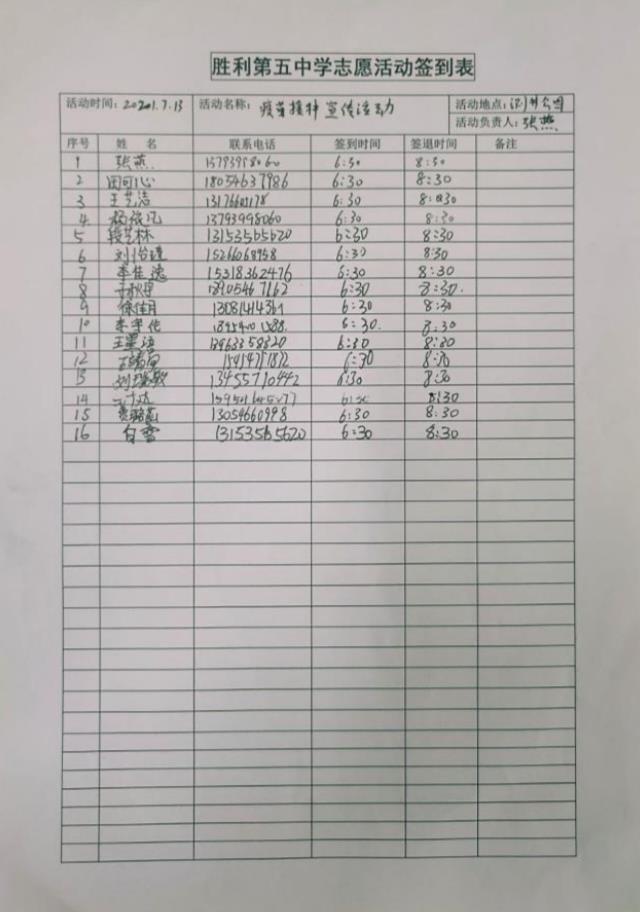 胜利第五中学志愿活动签到表
活动时间：20201.7.13 活动名称：疫苗接种宣传活动 活动地点：
活动负责人：张燕
序号 姓 名 联系电话 签到时间 签退时间 备注
1 张燕 13793998060 6:30 8:30
2 田可心 18054637986 6:30 8:30
3 王艺洁 6:30 8:030
4 13793998060 6:30 8:30
5 段艺林 13153565620 6:30 8:30
6 15266068958 6:30 8:30
7 李佳逸 15318362476 6:30 8:30
8 18905467162 6:30 8:30.
9 徐佳月 6:30 8:30
10 李宇伦 6:30. 8:30
11 13963358320 6:30 8:30
12 6:30 8:30
13 13455710442 6:30 8:30
14 8:30
15 13054660998 6:30 8:30
16 白雪 13153565620 6:30 8:30